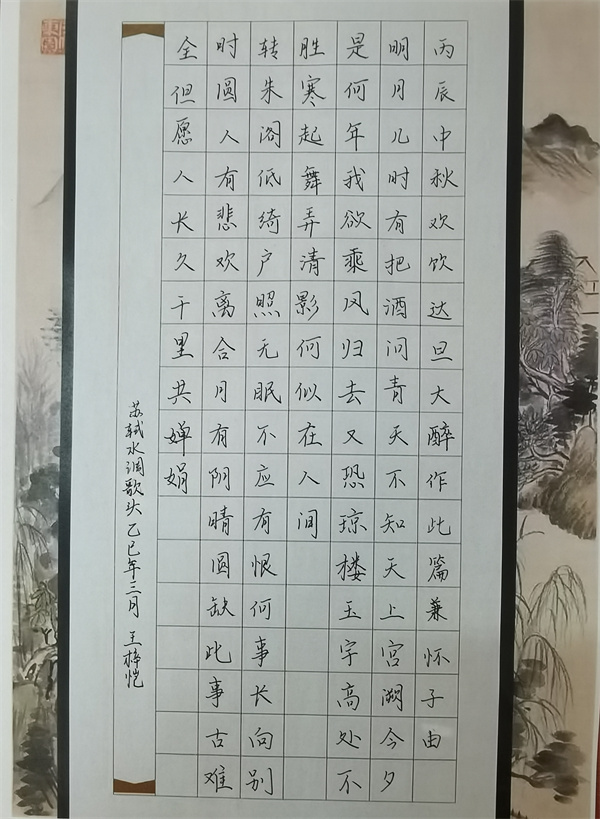 丙辰中秋欢饮达旦大醉作此篇兼怀子由
明月几时有把酒问青天不知天上宫阙今夕
是何年我欲乘风归去又恐琼楼玉宇高处不
胜寒起舞弄清影何似在人间
转朱阁低绮户照无眠不应有恨何事长向别
时圆人有悲欢离合月有阴晴圆缺此事古难
全但愿人长久千里共婵娟
苏轼水调歌头乙巳年三月 王梓恺